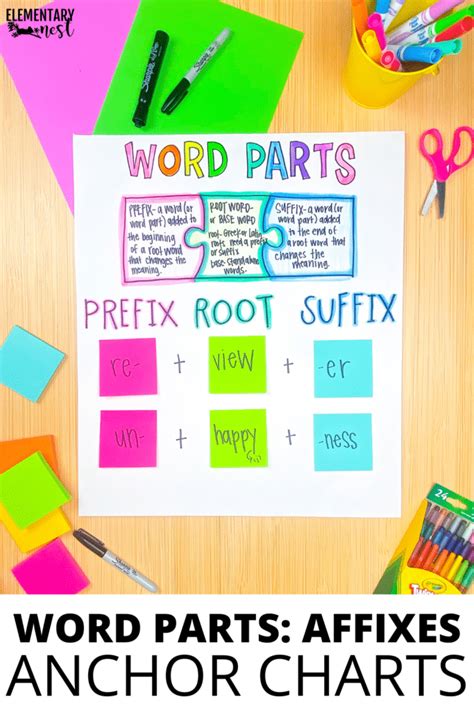 ELEMENTARY
nest
Sharpie
WORD PARTS
PREFIX- a word (or
word part) added to
the beginning
of a root word
that changes the
meaning.
ROOT WORD-
or BASE WORD
root- Greek or Latin
roots need a prefix
or suffix
base- standalone
words.
SUFFIX- a word (or
word part) added
to the end of
a root word that
changes the
meaning.
PREFIX ROOT SUFFIX
re- + view + -er
un- + happy + -ness
24
Crayola
WORD PARTS: AFFIXES
ANCHOR CHARTS